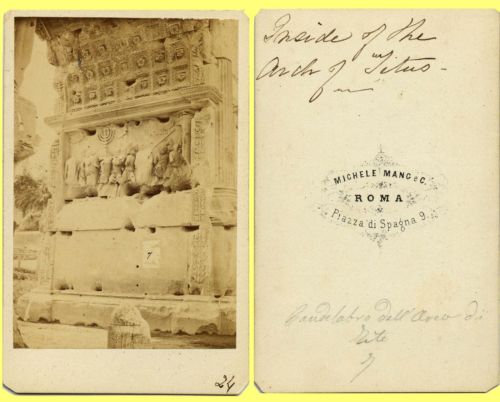 7
24
Inside of the
Arch of Titus-
MICHELE MANG & C.
ROMA
Piazza di Spagna 9.
Candelabro dell'Arco di
Tito
7